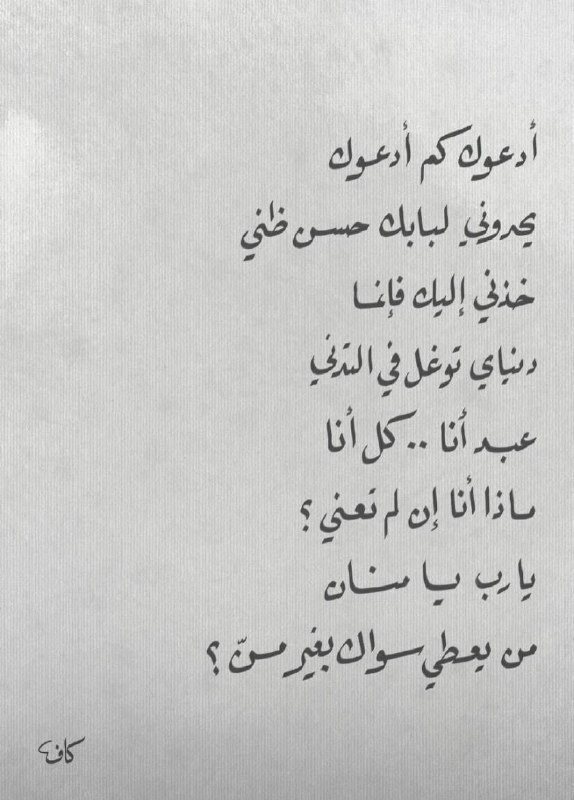 أدعوك كم أدعوك
يحدوني لبابك حسن ظني
خذني إليك فإنما
دنياي توغل في التدني
عبد أنا .. كل أنا
ماذا أنا إن لم تعني ؟
يا رب يا منان
من يعطي سواك بغير منّ ؟
كاف